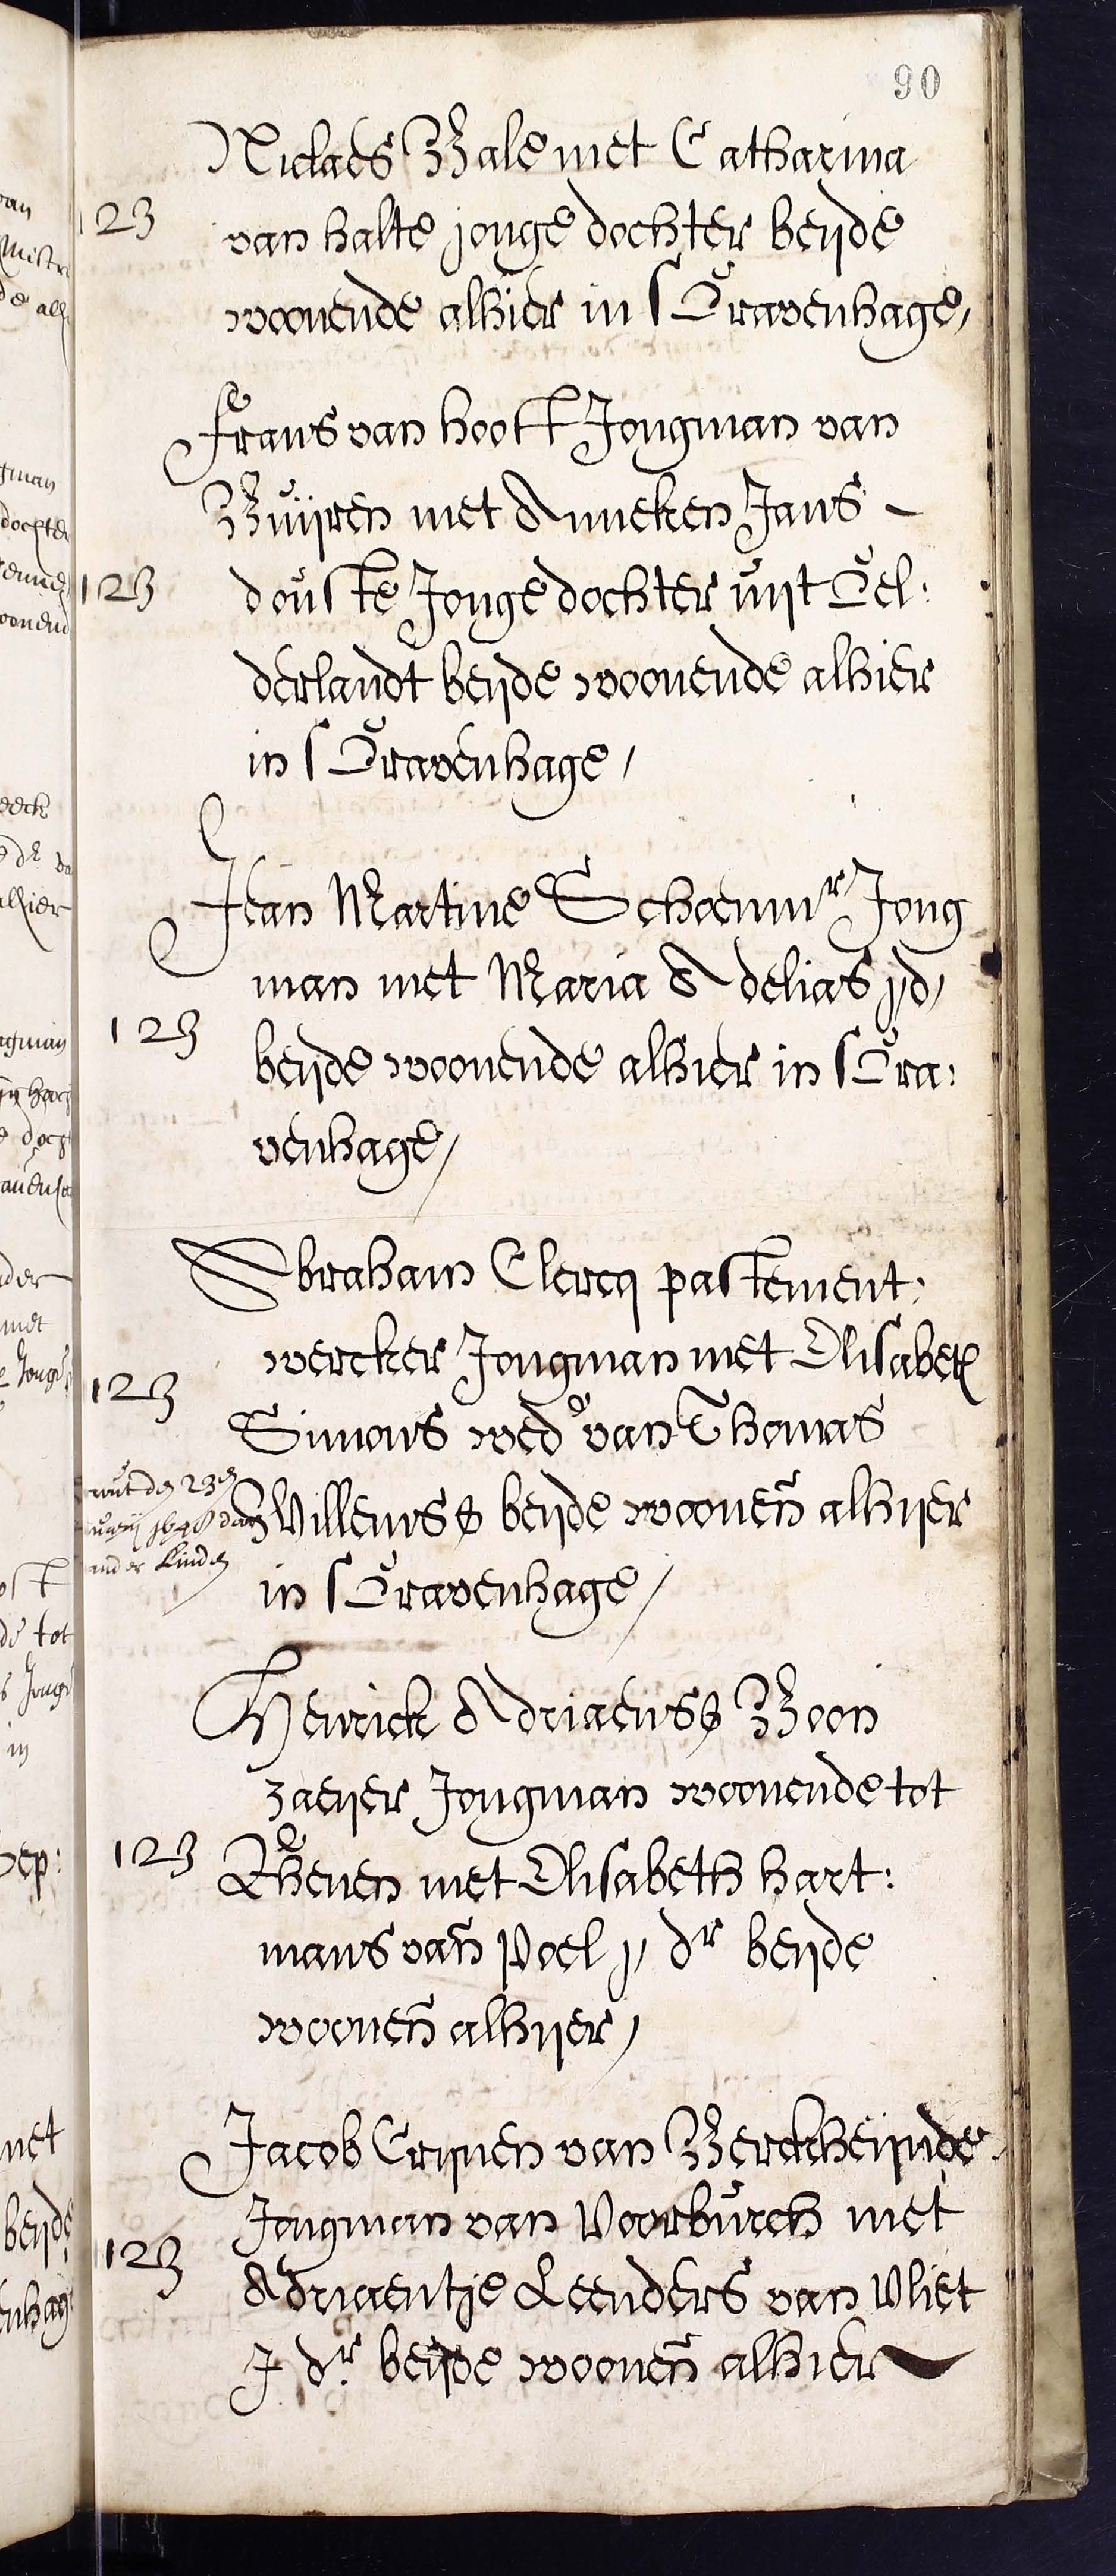 90
Niclaes Bale met Catharina
123 van halte jonge dochter beijde
woonende alhier in sGravenhage,
Frans van hooft Jongman van
Buijren met Anneken Jans -
123 douste Jonge dochter uijt Gel:
derlandt beijde woonende alhier
in sGravenhage,
Jean Martine Jong
man met Maria Adelias j,d,
123 beijde woonende alhier in sGra:
venhage,
Abraham Clercq pastement:
wercker Jongman met Elisabeth
123
Simons wedᵉ van Thomas
Willems beijde woonen̄ alhijer
in sGravenhage,
den 23en
1648
ander kinden
Henrick Adriaenss Boon
zaeijer Jongman woonende tot
123 Rhenen met Elisabeth hart:
mans van Poel j, dr beijde
woonen̄ alhijer,
Jacob Crijnen van Berckheijnde
Jongman van Voorburch met
123 Adriaentje Leenders van Vliet
J dr. beijde woonen̄ alhier